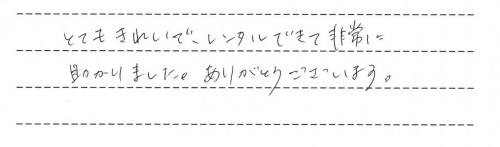 とてもきれいで、レンタルできて非常に
助かりました。ありがとうございます。